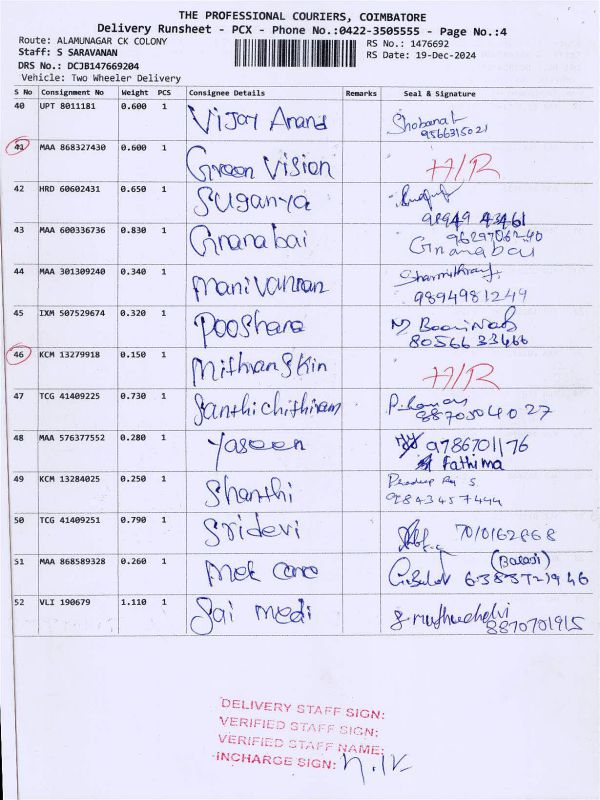 THE PROFESSIONAL COURIERS, COIMBATORE
Delivery Runsheet - PCX - Phone No.:0422-3505555 - Page No.:4
Route: ALAMUNAGAR CK COLONY
RS No.: 1476692
Staff: S SARAVANAN
RS Date: 19-Dec-2024
DRS No.: DCJB147669204
Vehicle: Two Wheeler Delivery
S No Consignment No Weight PCS Consignee Details Remarks Seal & Signature
40 UPT 8011181 0.600 1 Vijay Anand Shobana
9566315021
41 MAA 868327430 0.600 1 Green Vision H/R
42 HRD 60602431 0.650 1 Suganya
98949 43461
43 MAA 600336736 0.830 1 Gnanabai 9629706240
Gnanabai
44 MAA 301309240 0.340 1 Manivannan
9894981249
45 IXM 507529674 0.320 1 Pooshana
8056633466
46 KCM 13279918 0.150 1 Mithran Skin H/R
47 TCG 41409225 0.730 1 Santhichithiram
8870504027
48 MAA 576377552 0.280 1 Yaseen 9786701176
Fathima
49 KCM 13284025 0.250 1 Shanthi Pradeep Raj S
9843457444
50 TCG 41409251 0.790 1 Sridevi 7010162868
51 MAA 868589328 0.260 1 Met Care (Balaji)
6385721946
52 VLI 190679 1.110 1 Sai Medi S. Muthuchelvi
8870701915
DELIVERY STAFF SIGN:
VERIFIED STAFF SIGN:
VERIFIED STAFF NAME:
INCHARGE SIGN: